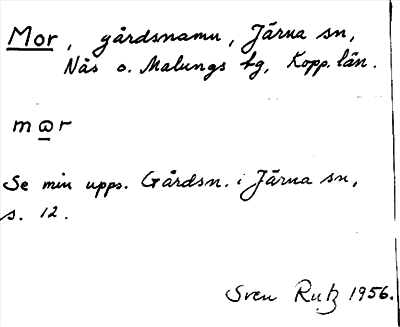 Mor, gårdsnamn, Järna sn,
Nås o. Malungs tg, Kopp. län.
mωr
Se min upps. Gårdsn. i Järna sn,
s. 12.
Sven Rutz 1956.